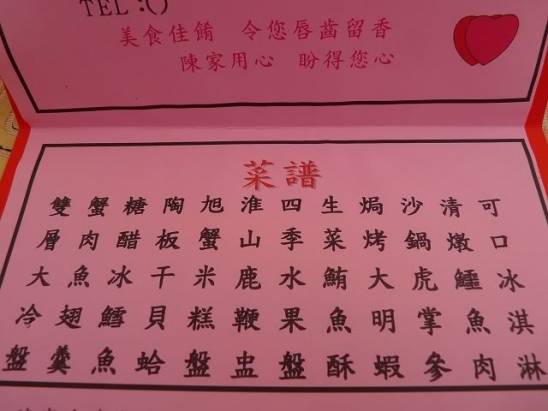 TEL:()
美食佳餚 令您唇齒留香
陳家用心 盼得您心
菜譜
雙層大冷盤
蟹肉魚翅羹
糖醋冰鱈魚
陶板干貝蛤
旭蟹米糕盤
淮山鹿鞭盅
四季水果盤
生菜鮪魚酥
焗烤大明蝦
沙鍋虎掌參
清燉鱷魚肉
可口冰淇淋